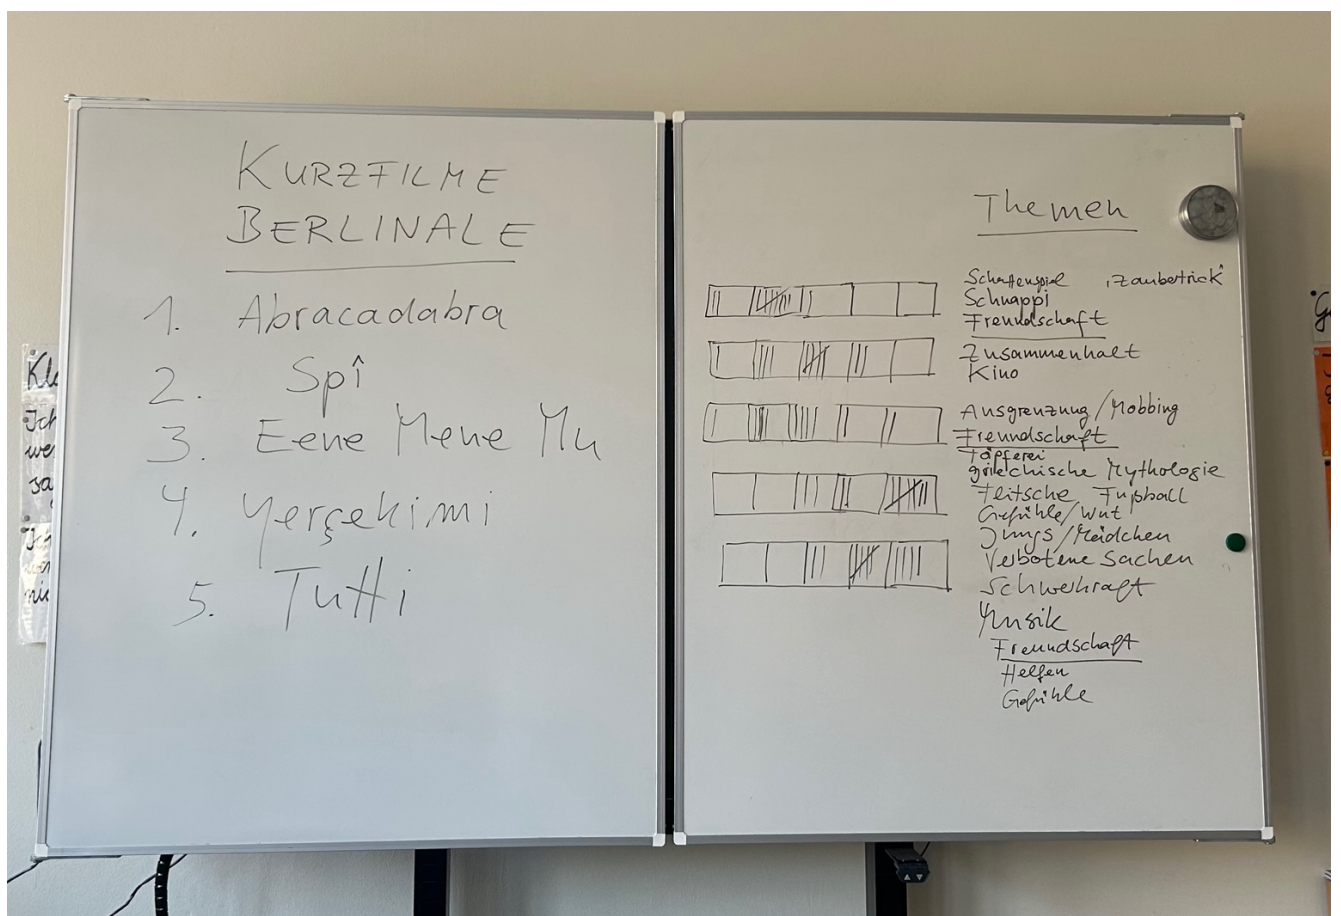 KURZFILME
BERLINALE
1. Abracadabra
2. Spî
3. Eene Mene Mu
4. Yerçekimi
5. Tutti
Themen
Schattenspiel „Zaubertrick“
Schnappi
Freundschaft
Zusammenhalt
Kino
Ausgrenzung/Mobbing
Freundschaft
Töpferei
griechische Mythologie
Teitsche Fußball
Gefühle/Wut
Jungs/Mädchen
Verbotene Sachen
Schwerkraft
Musik
Freundschaft
Helfen
Gefühle